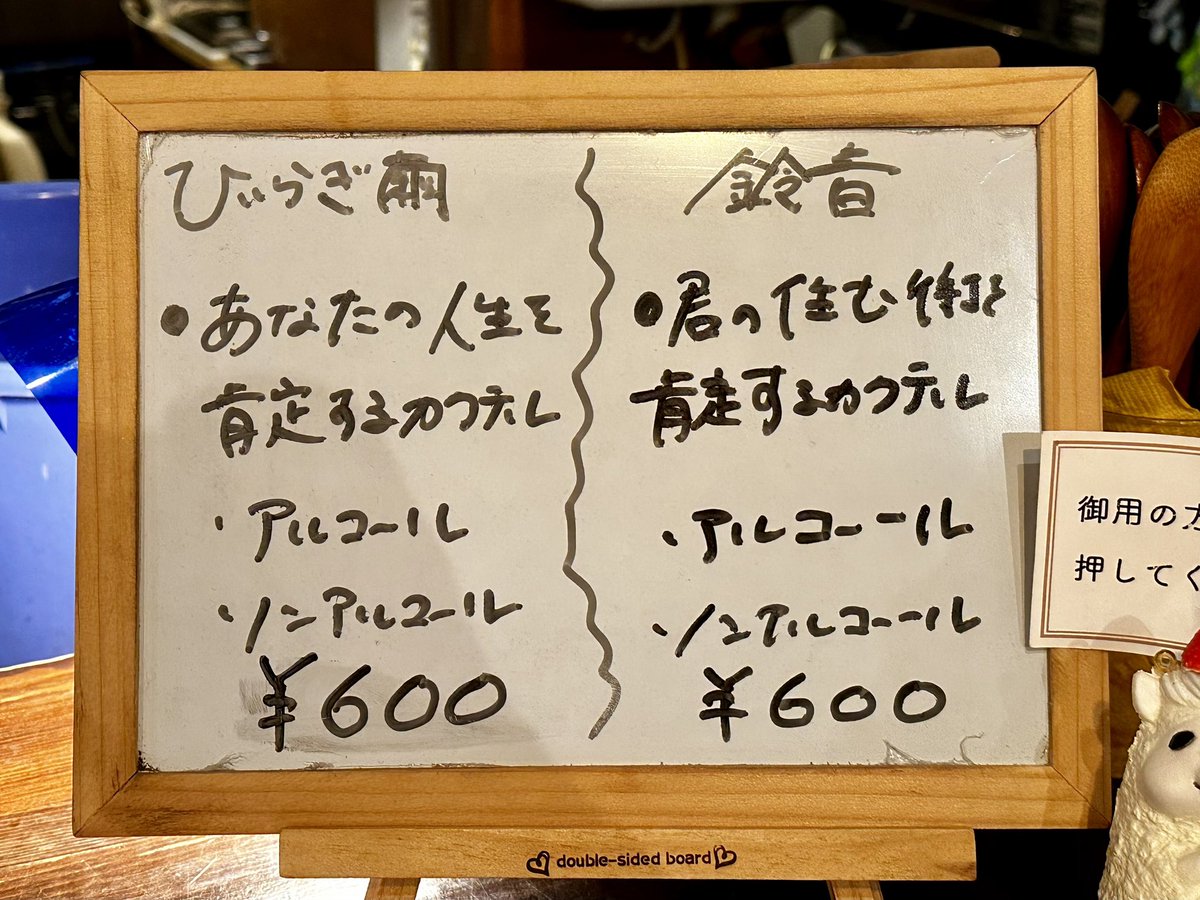 ひいらぎ繭
●あなたの人生を
肯定するカクテル
・アルコール
・ノンアルコール
¥600
鈴音
●君の住む街を
肯定するカクテル
・アルコール
・ノンアルコール
¥600
御用の方
押してく
double-sided board